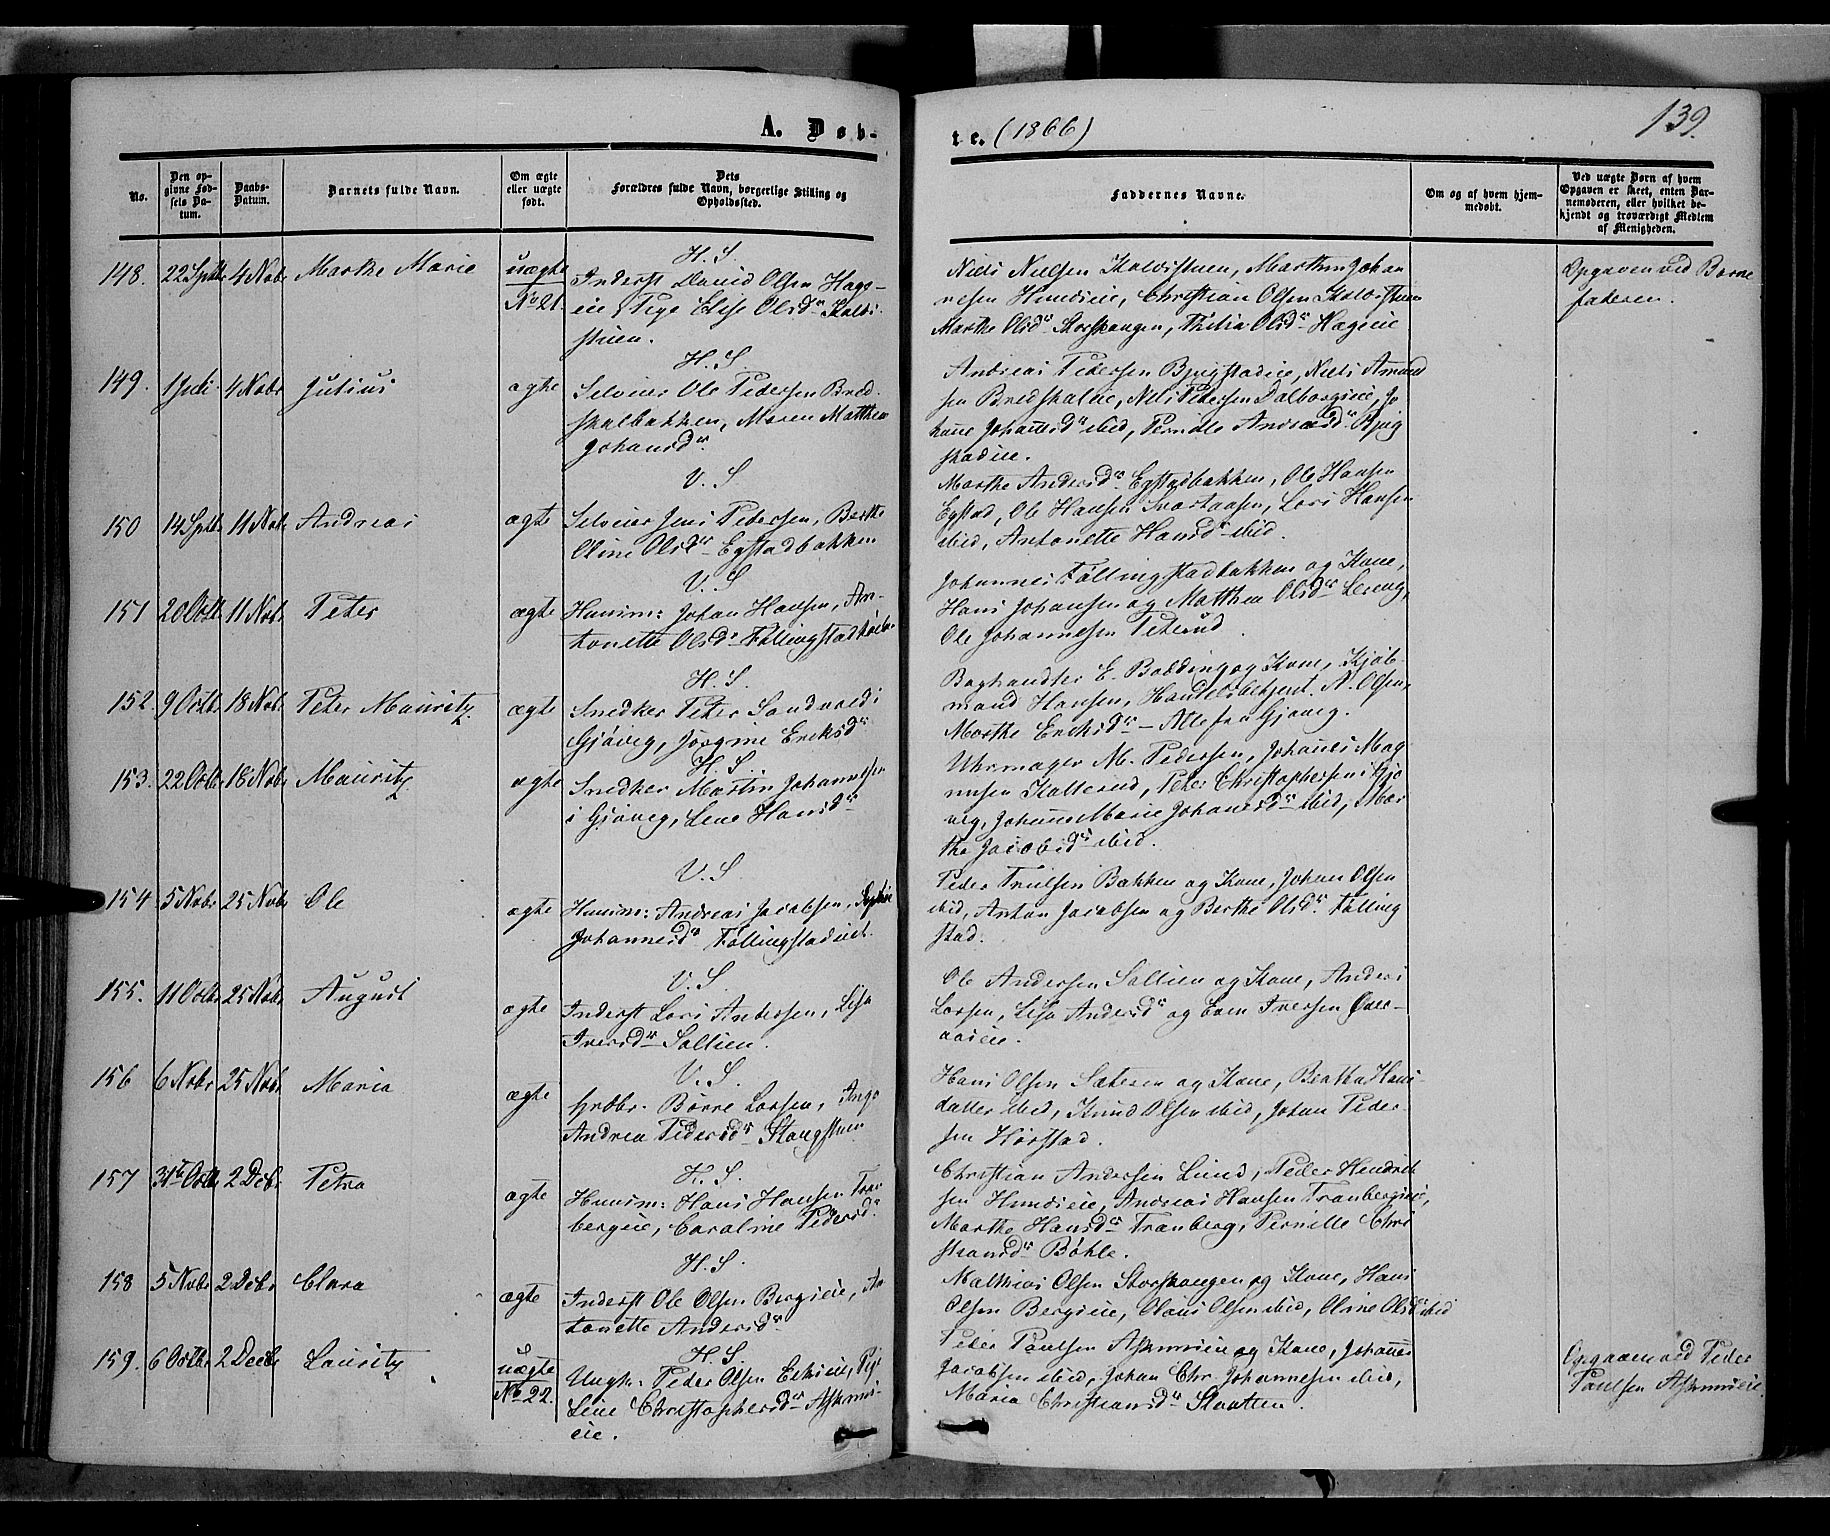 A. Døb-
te. (1866)
139.
No.
Den op-
givne Fød-
sels Da-
tum.
Daabs-
Datum.
Barnets fulde Navn.
Om ægte
eller uægte
født.
Dets
Forældres fulde Navn, borgerlige Stilling og
Opholdssted.
Faddernes Navne.
Om og af hvem hjem-
medøbt.
Ved uægte Børn af hvem
Opgaven er skeet, enten Bar-
nemoderen, eller hvilket be-
kjendt og troværdigt Medlem
af Menigheden.
148. 22 Sptbr 4 Nobr Marthe Marie uægte
No 21.
H. S.
Inderst David Olsen Hage-
eie, Pige Elise Olsdr Kalvs-
stuen.
Niels Nielsen Kalvstuen, Marthin Johan
nesen Hundeie, Christian Olsen Kalvstuen
Marthe Olsdr Storhaugen, Thilia Olsdr Hageeie
Opgaven ved Barne
faderen.
149. 1 Juli 4 Nobr Julius ægte
H. S.
Selveier Ole Pedersen Bred-
skalbakken, Maren Matthea
Johansdr
Andreas Pedersen Bjugstadeie, Niels Amund
sen Bredskaleie, Nils Pedersen Dalborgeie, Jo
hanne Johannesdr ibid, Pernille Andreasdr Bjug
stadeie.
150 14 Sptbr 11 Nobr Andreas ægte
V. S
Selveier Jens Pedersen, Berthe
Oline Olsdr Egstadbakken
Marthe Andersdr Egstadbakken, Ole Hansen
Egstad, Ole Hansen Svartaasen, Lars Hansen
ibid, Antonette Hansdr ibid.
151 20 Octbr 11 Nobr Peter ægte
V. S
Huusm: Johan Hansen, An-
tonette Olsdr Føllingstad
Johannes Føllingstadbakken og Kone,
Hans Johansen og Matthea Olsdr
Ole Johannesen Peterud
152. 9 Octbr 18 Nobr Peter Mauritz. ægte
H. S.
Snedker Peter Sandved i
Gjøvig, Jørgine Eriksdr
Boghandler E. Bolding og Kone, Kjøb-
mand Hansen, Handelsbetjent. N. Olsen,
Marthe Eriksdr - Alle fra Gjøvig.
153. 22 Octbr 18 Nobr Mauritz ægte
H. S.
Snedker Martin Johannesen
i Gjøvig, Lene Hansdr
Uhrmager M. Pedersen, Johannes Mag
nusen Kallerud, Peter Christophersen i Gjø
vig, Johanne Marie Johannesdr ibid, Mar
the Jacobsdr ibid.
154 5 Nobr 25 Nobr Ole ægte
V. S
Huusm: Andreas Jacobsen, Sophie
Johannesdr Føllingstadeiet.
Peder Trulsen Bakken og Kone, Johan Olsen
ibid, Anton Jacobsen og Berthe Olsdr Følling
stad.
155. 11 Octbr 25 Nobr August ægte
V. S
Inderst Lars Andersen, Lisa
Iversdr Sollien.
Ole Andersen Sollien og Kone, Anders
Larsen, Lisa Andersdr og Even Iversen
156 6 Nobr 25 Nobr Maria ægte
V. S.
Grdbr. Børre Larsen, Inga
Andrea Pedersdr Skaugstuen
Hans Olsen Sæteren og Kone, Beatha Hans
datter ibid, Knud Olsen ibid, Johan Peder-
sen Hørstad.
157 31te Octbr 2 Debr Petra ægte
H. S.
Huusm: Hans Hansen Tran
bergeie, Caroline Pedersdr
Christian Andersen Lund, Peder Hendrik
sen Hundeie, Andreas Hansen Tranbergeie,
Marthe Hansdr Tranberg, Pernille Chri
stiansdr Bøhle.
158 5 Nobr 2 Debr Clara ægte
H. S.
Inderst Ole Olsen Bergseie, An
tonette Andersdr
Mathias Olsen Storhaugen og Kone, Hans
Olsen Bergseie, Olaus Olsen ibid, Oline Olsdr ibid
159. 6 Octbr 2 Decbr Lauritz uægte
No 22.
H. S
Ungk: Peder Olsen, Pige
Lene Christophersdr Askim
eie.
Peder Paulsen Askimeie og Kone, Johannes
Jacobsen ibid, Johan Chr. Johannesen ibid,
Maria Christiansdr Slaatten.
Opgaven ved Peder
Paulsen Askimeie.